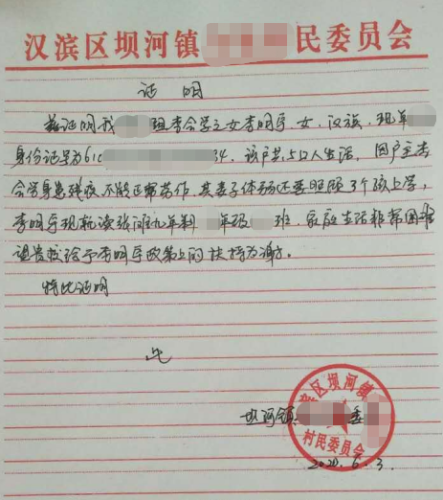 汉滨区坝河镇 民委员会
证明
兹证明我 组李会学之女李明导,女,汉族,现年
身份证号为610 34,该户共5口人生活,因户主李
会学身患残疾不能正常劳作,其妻子体弱还要照顾3个孩上学,
李明导现就读张滩九年制 年级 班,家庭生活非常困难
望贵校给予李明导政策上的扶持为谢。
特此证明
此
坝河镇 委
汉滨区坝河镇
村民委员会
2020.6.3.